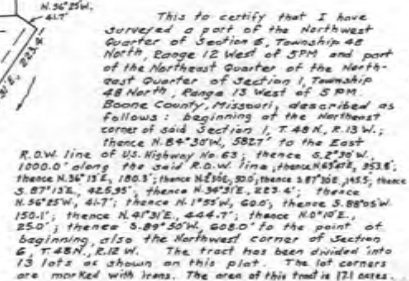 N.56°25'W.
41.7'
31'E, 223.4'
This to certify that I have
surveyed a part of the Northwest
Quarter of Section 6, Township 48
North, Range 12 West of 5PM and part
of the Northeast Quarter of the North-
east Quarter of Section 1, Township
48 North, Range 13 West of 5 PM.
Boone County, Missouri, described as
follows: beginning at the Northeast
corner of said Section 1, T.48N., R.13W.;
thence N.84°30'W, 582.7' to the East
R.O.W. line of U.S. Highway No. 63; thence S.2°30'W,
1000.0' along the said R.O.W. line; thence 353.8';
thence N.36°13'E, 180.3'; thence thence
S.87°13'E, 425.95'; thence N.34°31'E, 223.4'; thence
N.56°25'W, 41.7'; thence N.1°55'W, 60.0'; thence S.88°05'W
150.1'; thence N.41°31'E, 444.7'; thence N.0°10'E,
25.0'; thence S.89°50'W, 608.0' to the point of
beginning, also the Northwest corner of Section
6, T.48N., R.12W. The tract has been divided into
13 lots as shown on this plat. The lot corners
are marked with irons. The area of this tract is 17.1 acres.